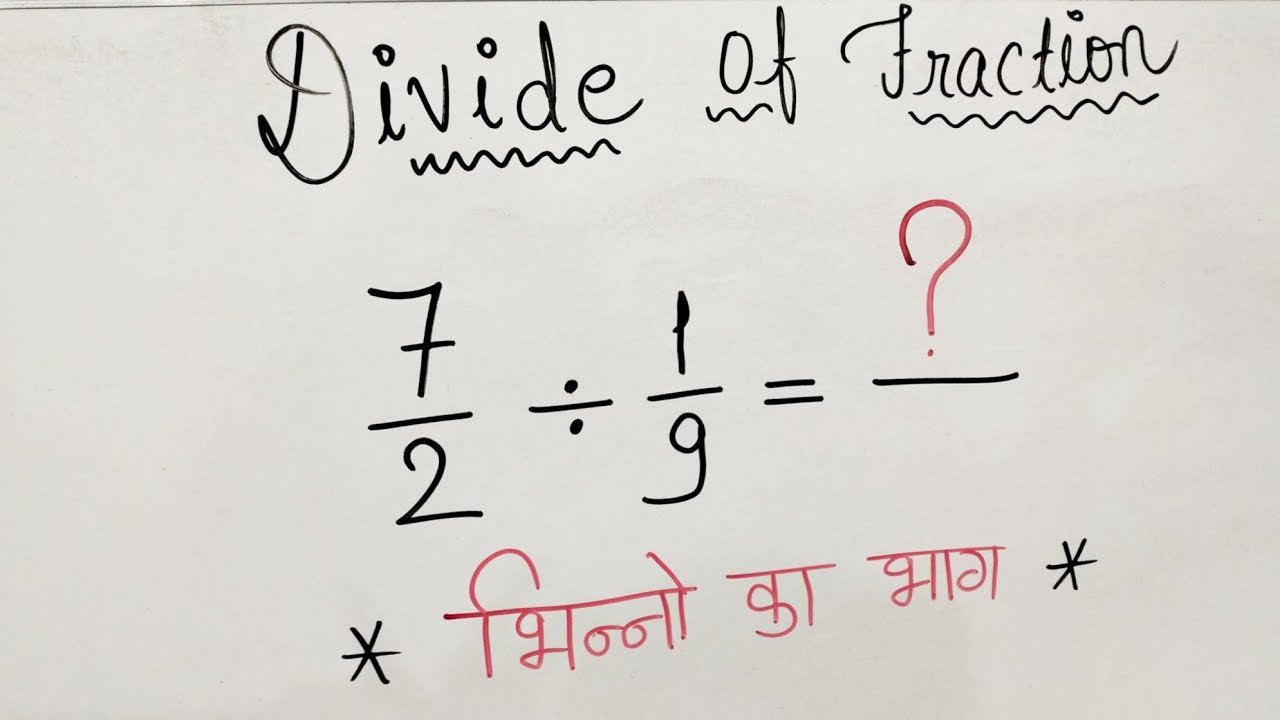 Divide Of Fraction
7/2 ÷ 1/9 = ?
* भिन्नो का भाग *